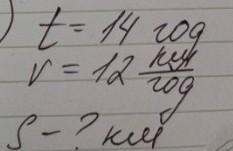 t = 14 год
v = 12 км/год
S - ? км